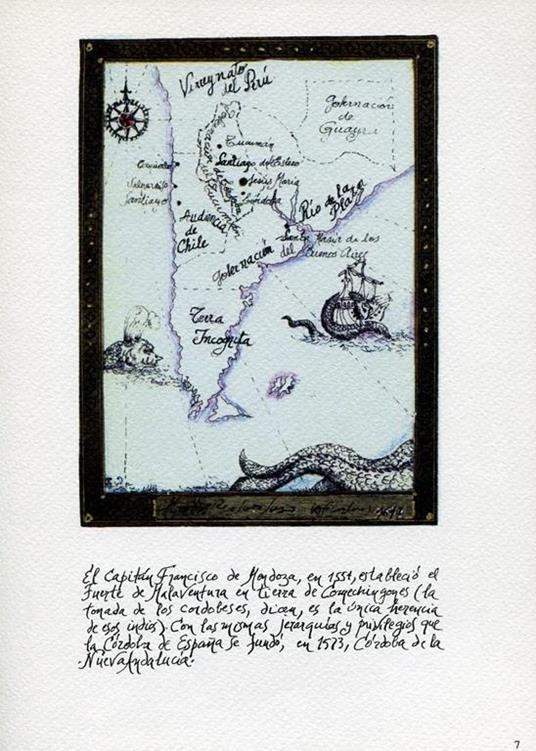 Virreynato
del Perú
Gobernación
de
Tucumán
Santiago del Estero
Jesús María
Córdoba
Valparaíso
Santiago
Audiencia
de
Chile
Río de la
Plata
Santa María de los
Buenos Aires
Gobernación del
Terra
Incognita
El Capitán Francisco de Mendoza, en 1551, estableció el
Fuerte de Malaventura en tierra de Comechingones (la
tonada de los cordobeses, dicen, es la única herencia
de esos indios). Con las mismas jerarquías y privilegios que
la Córdoba de España se fundó, en 1573, Córdoba de la
Nueva Andalucía.
7